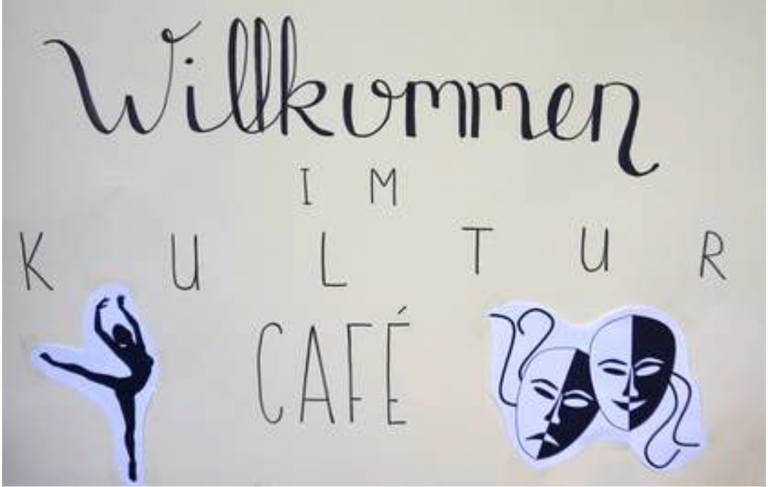 Willkommen
IM
KULTUR
CAFÉ